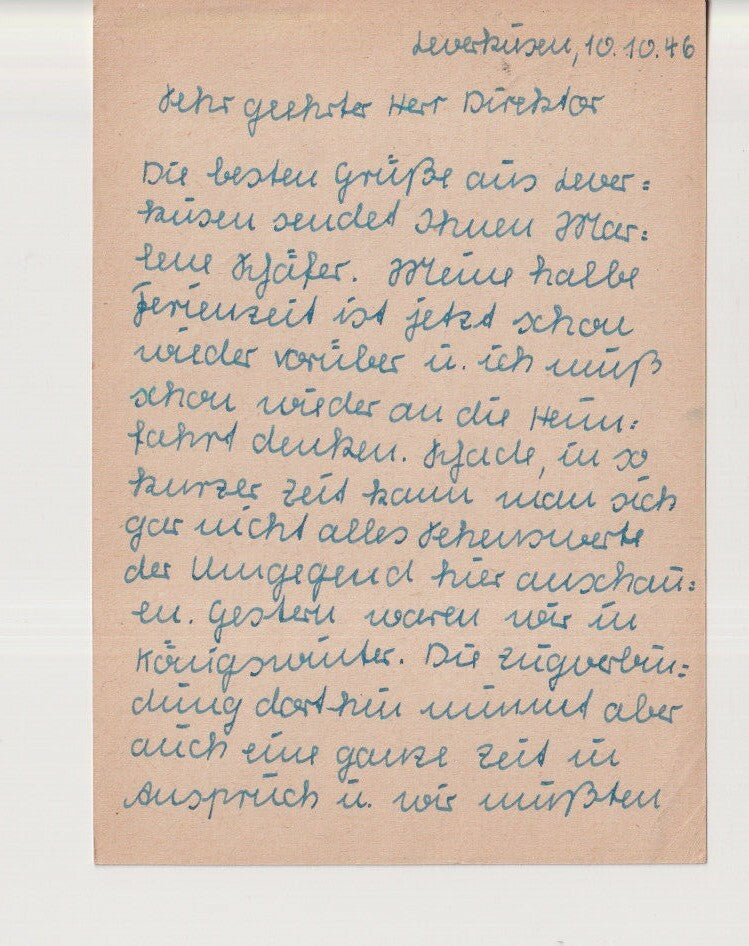 Leverkusen, 10.10.46
Sehr geehrter Herr Direktor
Die besten Grüße aus Lever=
kusen sendet Ihnen Mar=
lene Schäfer. Meine halbe
Ferienzeit ist jetzt schon
wieder vorüber u. ich muß
schon wieder an die Heim=
fahrt denken. Schade, in so
kurzer Zeit kann man sich
gar nicht alles Sehenswerte
der Umgegend hier anschau=
en. Gestern waren wir in
Königswinter. Die Zugverbin=
dung dorthin nimmt aber
auch eine ganze Zeit in
Anspruch u. wir mußten